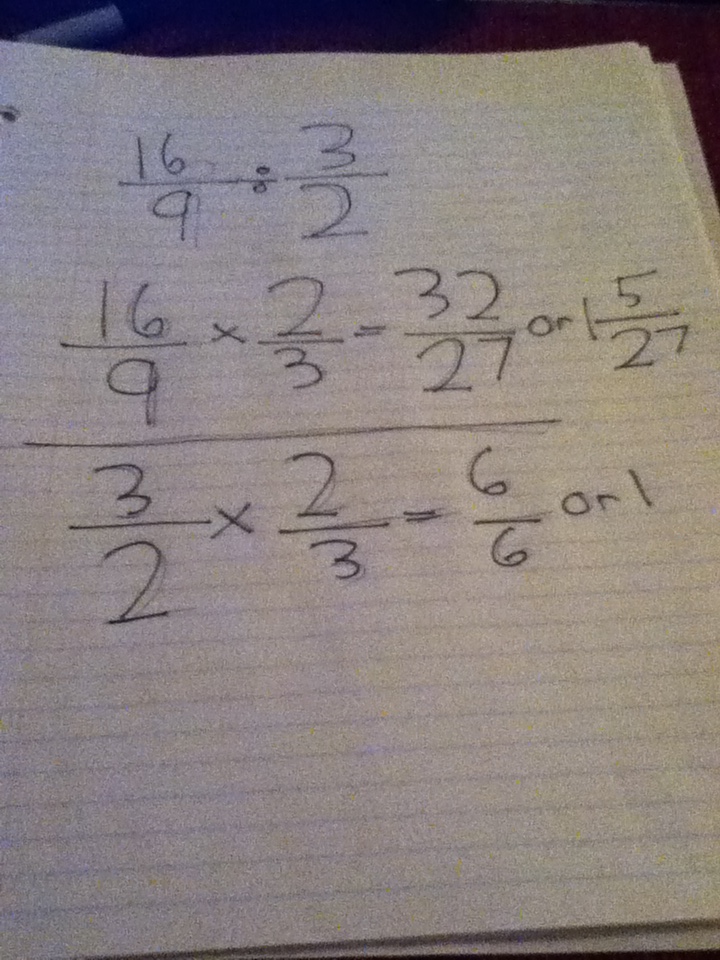 16/9 ÷ 3/2
16/9 × 2/3 = 32/27 or 1 5/27
3/2 × 2/3 = 6/6 or 1